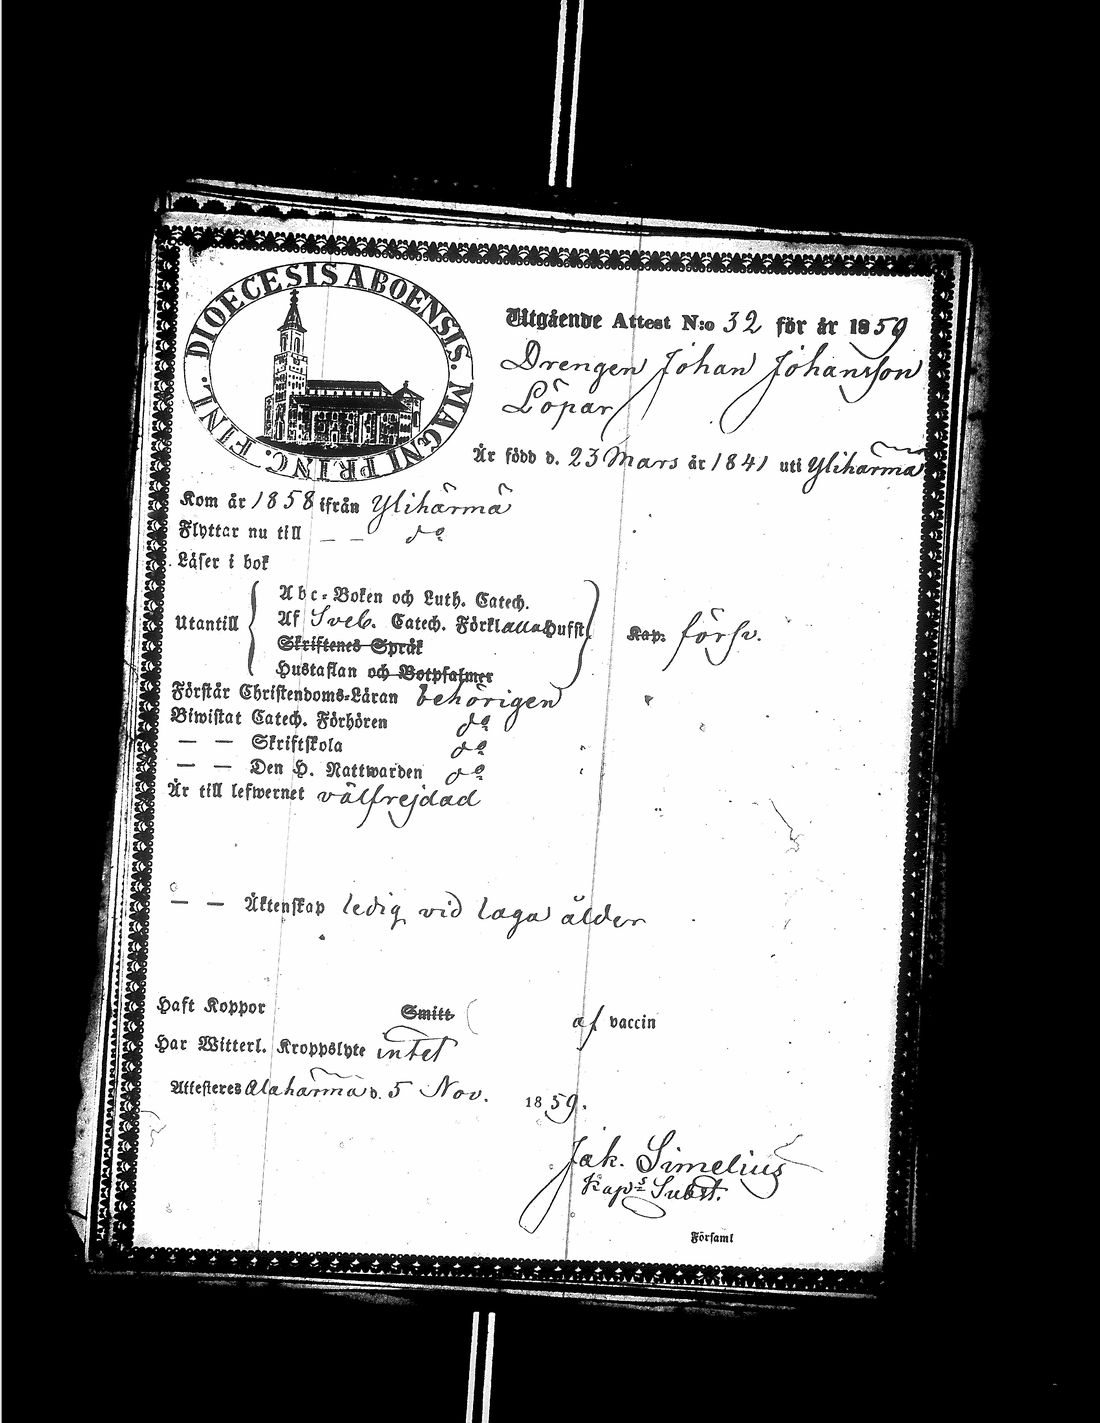 DIOECESIS ABOENSIS. MAGNI PRINC. FINL.
Utgående Attest N:o 32 för år 1859
Drengen Johan Johansson
Löpar
Är född d. 23 Mars år 1841 uti Ylihärmä
Kom år 1858 ifrån Ylihärmä
Flyttar nu till — — do
Läser i bok
Utantill
Abc-Boken och Luth. Catech.
Af Sveb. Catech. Förkl. alla Hufst.
Skriftenes Språk
Hustaflan och Botpsalmer
Kap: försv.
Förstår Christendoms-Läran behörigen
Biwistat Catech. Förhören do
— — Skriftskola do
— — Den H. Nattwarden do
Är till lefwernet välfrejdad
— — Äktenskap ledig vid laga ålder
Haft Koppor Smitt af vaccin
Har Witterl. Kroppslyte intet
Attesteres Alahärmä d. 5 Nov. 1859.
Jak. Simelius
Kaps Subst.
Församl